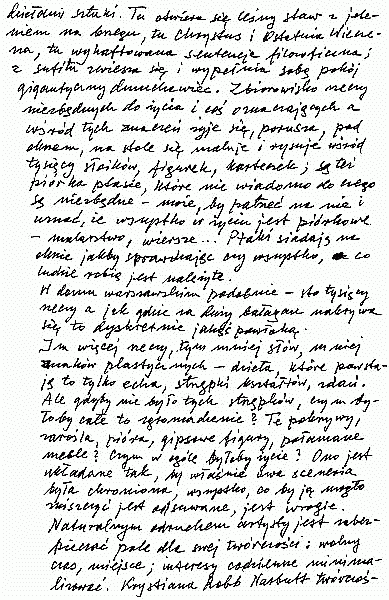 dziełami sztuki. Tu otwiera się leśny staw z jele-
niem na brzegu, tu Chrystus i Ostatnia Wiecze-
rza, tu wyhaftowana sentencja filozoficzna;
z sufitu zwiesza się i wypełnia sobą pokój
gigantyczny dmuchawiec. Zbiorowisko rzeczy
niezbędnych do życia i coś oznaczających a
wśród tych znaczeń żyje się, porusza, pod
oknem, na stole się maluje i rysuje wśród
tysięcy słoików, figurek, karteczek; są też
piórka ptasie, które nie wiadomo do czego
są niezbędne – może, by patrzeć na nie i
uznać, że wszystko w życiu jest piórkowe
– malarstwo, wiersze... Ptaki siadają na
oknie jakby sprawdzając czy wszystko, co
ludzie robią jest należyte.
W domu warszawskim podobnie – sto tysięcy
rzeczy a jak gdzie są dziury bałagan nakrywa
się to dyskretnie jakąś pawłoką.
Im więcej rzeczy, tym mniej słów, mniej
znaków plastycznych – dzieła, które powsta-
ją to tylko echa, strzępki kształtów, zdań.
Ale gdyby nie było tych strzępków, czym by-
łoby całe to zgromadzenie? Te pokrywy,
zarośla, pióra, gipsowe figury, połamane
meble? Czym w ogóle byłoby życie? Ono jest
układane tak, by właśnie owa sceneria
była chroniona, wszystko, co by ją mogło
zniszczyć jest odsuwane, jest wrogie.
Naturalnym odruchem artysty jest zabez-
pieczać pole dla swej twórczości: wolny
czas, miejsce; interesy codzienne minima-
lizować. Krystiana Robb Narbutt twórczoś-